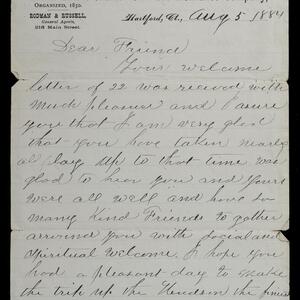 ORGANIZED, 1850.
RODMAN & RUSSELL,
General Agents,
218 Main Street.
Hartford, Ct., Aug 5 1884
Dear Friend
Your welcome
letter of 22 was recived with
Much pleasure and I asure
you that I am very glad
that you have taken nearly
al Day up to that time was
glad to hear you and yours
were all well and have so
many Kind Friends to gather
arround you with social and
Spiritual welcome. I hope you
had a pleasant day to make
the trip up the Hudson the